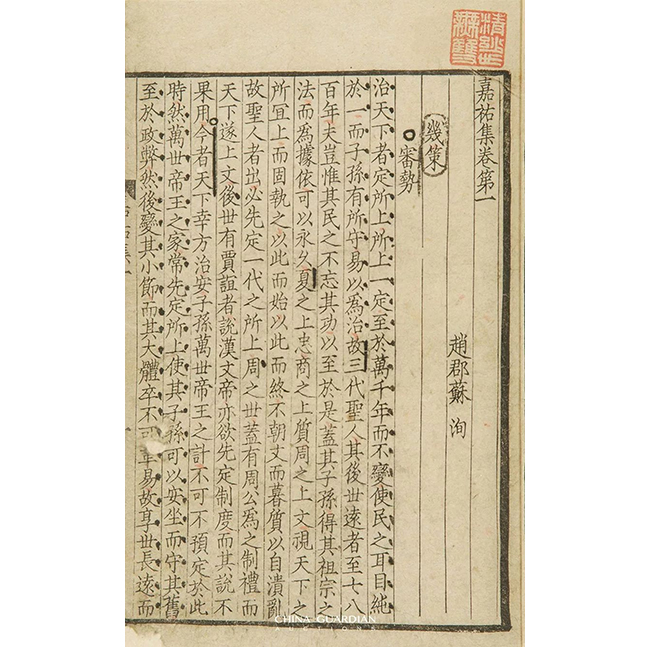 嘉祐集卷第一
趙郡蘇 洵
幾策
審勢
治天下者定所上所上一定至於萬千年而不變使民之耳目純
於一而子孫有所守易以爲治故三代聖人其後世遠者至七八
百年夫豈惟其民之不忘其功以至於是蓋其子孫得其祖宗之
法而爲據依可以永久夏之上忠商之上質周之上文視天下之
所宜上而固執之以此而始以此而終不朝文而暮質以自潰亂
故聖人者出必先定一代之所上周之世蓋有周公爲之制禮而
天下遂上文後世有賈誼者說漢文帝亦欲先定制度而其說不
果用今者天下幸方治安子孫萬世帝王之計不可不預定於此
時然萬世帝王之家常先定所上使其子孫可以安坐而守其舊
至於政弊然後變其小節而其大體卒不可革易故享世長遠而
CHINA GUARDIAN